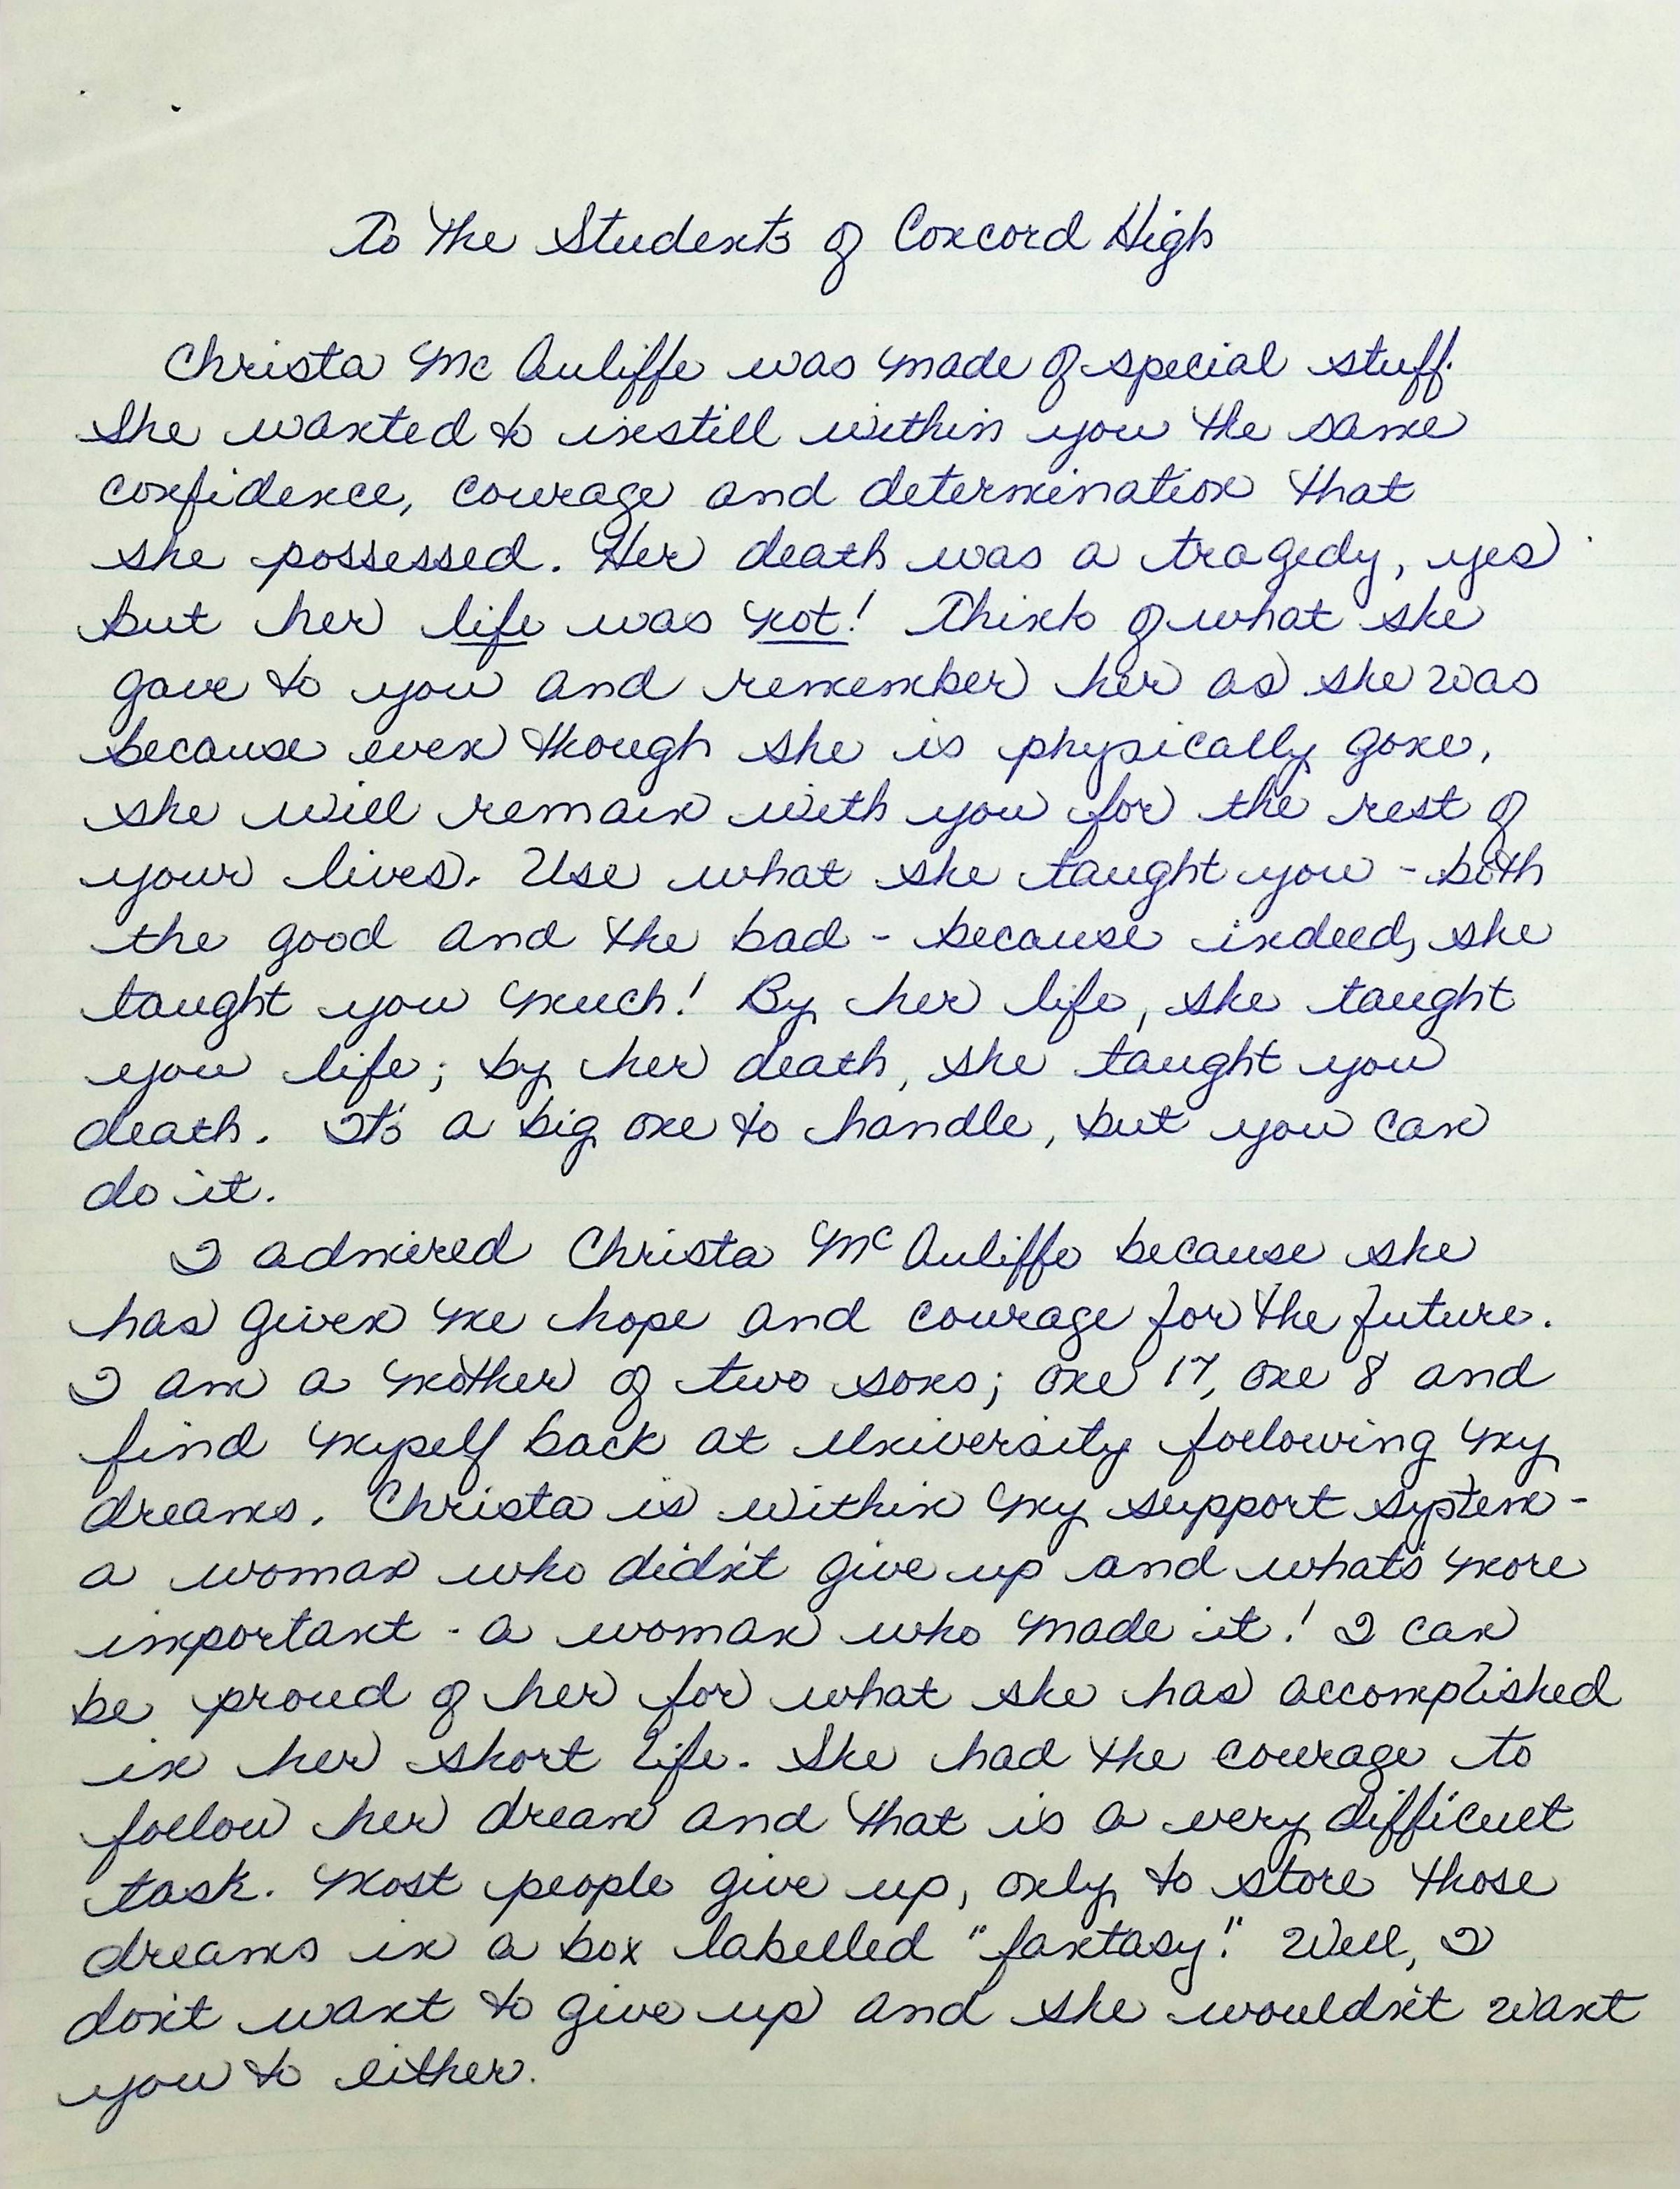 To the Students of Concord High
Christa Mc Auliffe was made of special stuff.
She wanted to instill within you the same
confidence, courage and determination that
she possessed. Her death was a tragedy, yes
but her life was not! Think of what she
gave to you and remember her as she was
because even though she is physically gone,
she will remain with you for the rest of
your lives. Use what she taught you - both
the good and the bad - because indeed, she
taught you much! By her life, she taught
you life; by her death, she taught you
death. It's a big one to handle, but you can
do it.
I admired Christa McAuliffe because she
has given me hope and courage for the future.
I am a mother of two sons; one 17, one 8 and
find myself back at University following my
dreams. Christa is within my support system -
a woman who didn't give up and what's more
important - a woman who made it! I can
be proud of her for what she has accomplished
in her short life. She had the courage to
follow her dream and that is a very difficult
task. Most people give up, only to store those
dreams in a box labelled "fantasy." Well, I
don't want to give up and she wouldn't want
you to either.